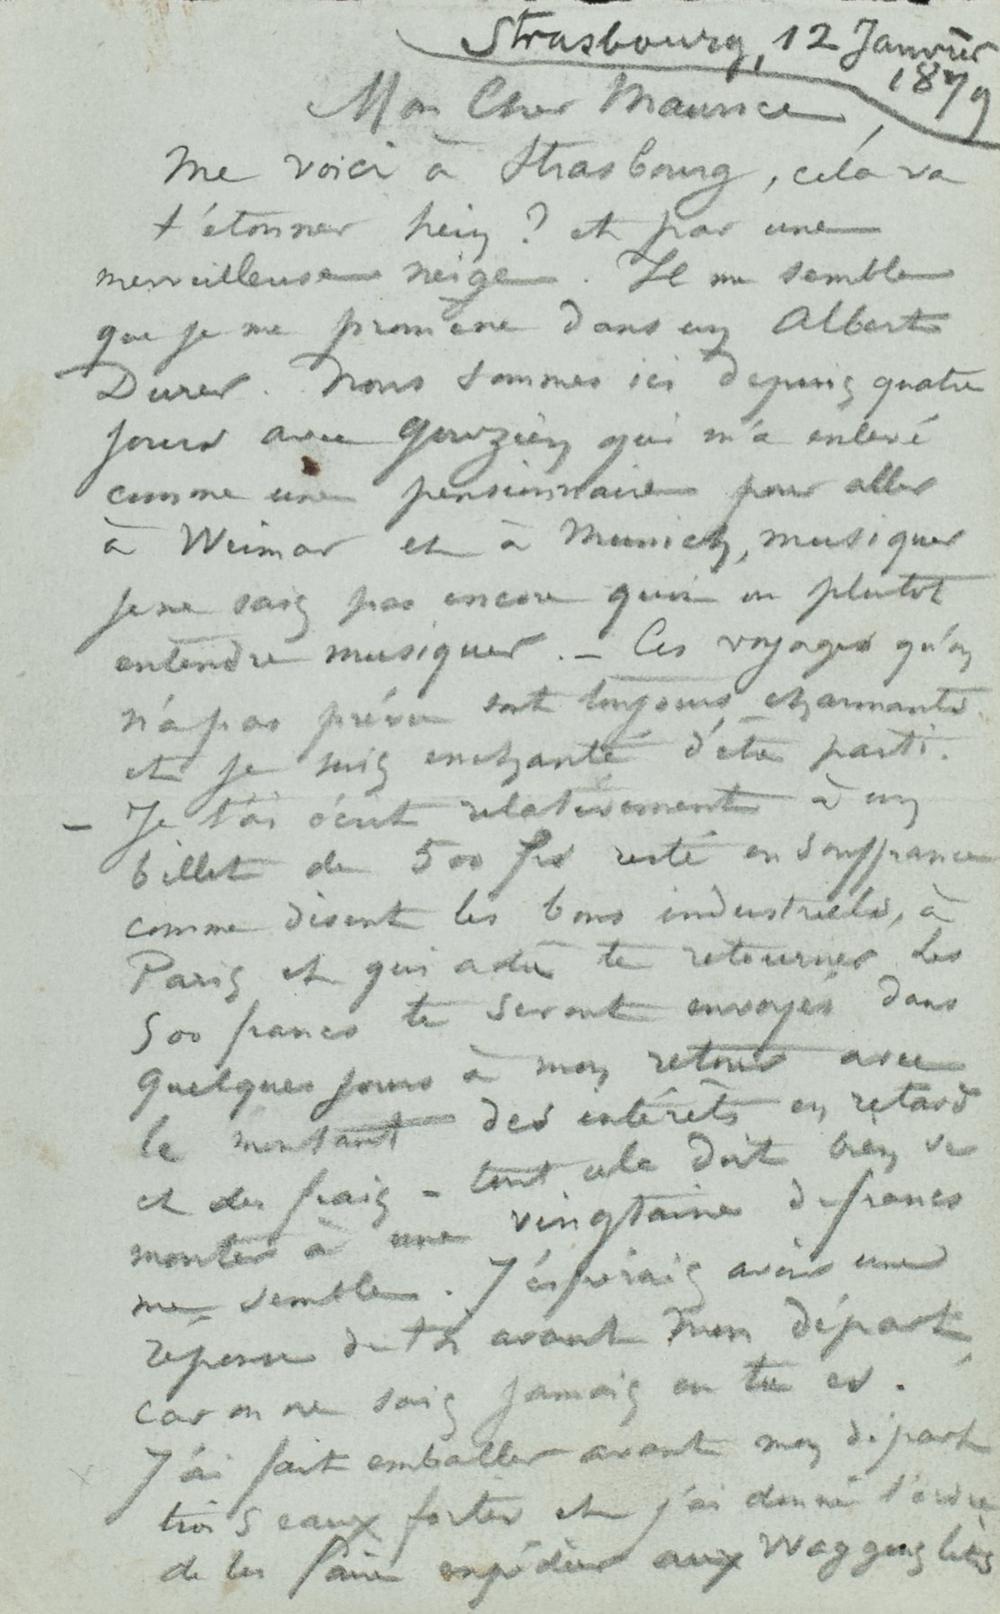 Strasbourg, 12 Janvier
1879
Mon Cher Maurice,
Me voici à Strasbourg, céla va
t'étonner hein ? et par une
merveilleuse neige. Il me semble
que je me promène dans un Albert
Durer. Nous sommes ici depuis quatre
jours avec Gouzien qui m'a enlevé
comme une pensionnaire pour aller
à Weimar et à Munich, musiquer
je ne sais pas encore quoi ou plutot
entendre musiquer. – Ces voyages qu'on
n'a pas prévu sont toujours charmants
et je suis enchanté d'être parti.
– Je t'ai écrit relativement à un
billet de 500 frs resté en souffrance
comme disent les bons industriels, à
Paris et qui a dû te retourner. Les
500 francs te seront envoyés dans
quelques jours à mon retour avec
le montant des intérêts en retard
et des frais – tout cela doit bien se
monter à une vingtaine de francs
me semble. J'éspérais avoir une
réponse de toi avant mon départ,
car on ne sais jamais ou tu es.
J'ai fait emballer avant mon départ
trois eaux fortes et j'ai donné l'ordre
de les faire expédier aux